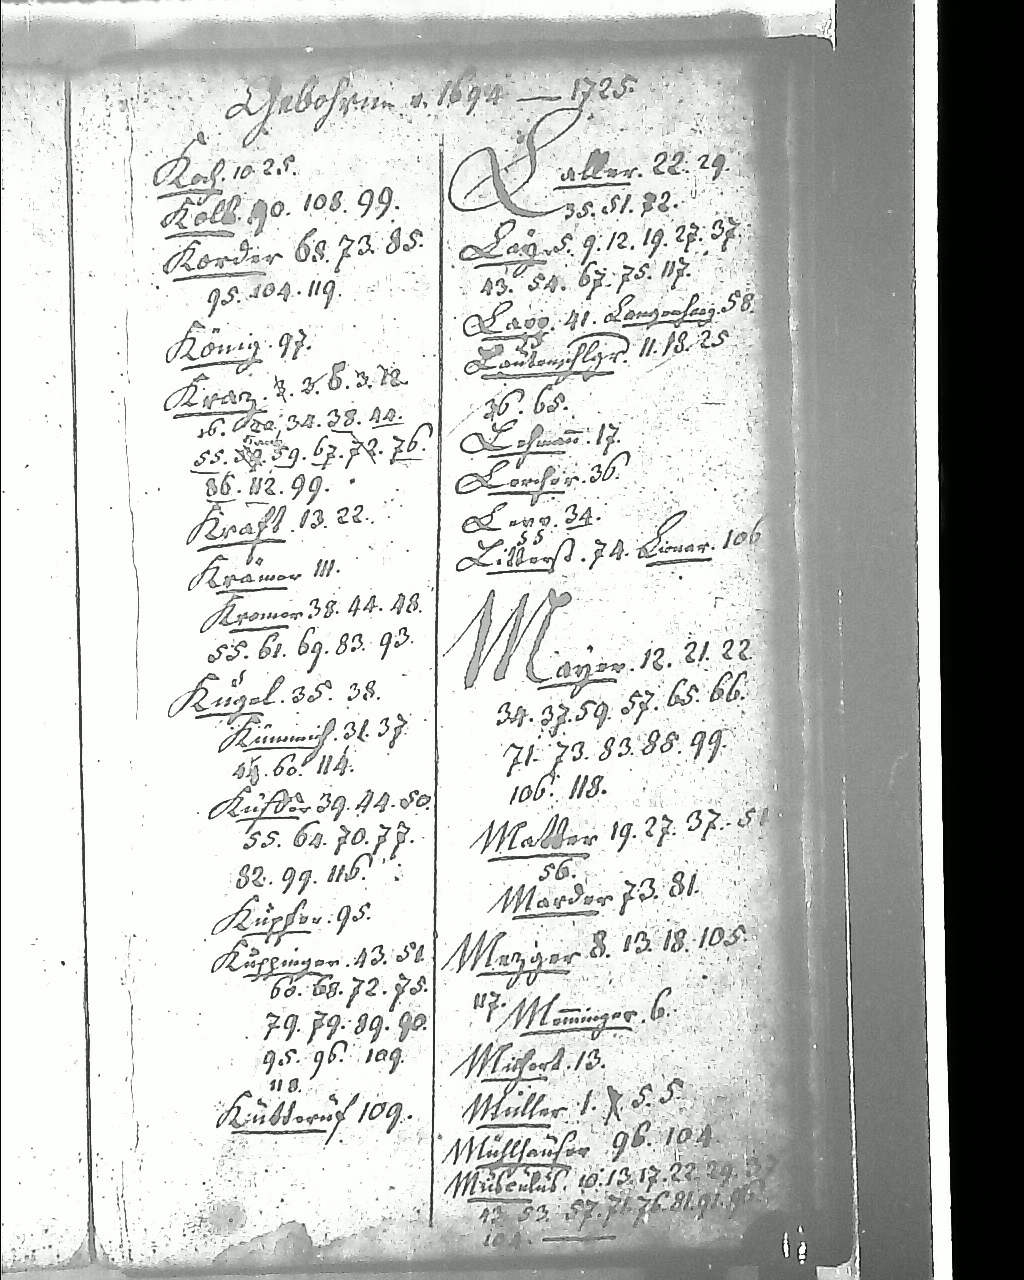 Gebohrne v. 1694 — 1725.
Koch. 10. 25.
Kolb. 90. 108. 99.
Korder 68. 73. 85.
95. 104. 119.
König. 97.
Kraz. 6. 3. 12.
16. 34. 38. 44.
55. 59. 67. 72. 76.
86. 112. 99.
Kraft. 13. 22.
Krämer 111.
Kromer 38. 44. 48.
55. 61. 69. 83. 93.
Kugel. 35. 38.
Kümmich. 31. 37
44. 60. 114.
Küster 39. 44. 50.
55. 64. 70. 77.
82. 99. 116.
Küpfer. 95.
Küppinger. 43. 51.
60. 68. 72. 75.
79. 79. 89. 90.
95. 96. 109.
118.
Kütteruf 109.
Laller. 22. 29.
35. 51. 72.
Lay. 5. 9. 12. 19. 27. 37
43. 54. 67. 75. 117.
Lapp. 41. 58.
Lautenschlgr. 11. 18. 25
36. 65.
Lehmañ. 17.
Lercher. 36.
Lepp. 34.
55
Litterst. 74. Lienar. 106
Mayer. 12. 21. 22
34. 37. 59. 57. 65. 66.
71. 73. 83. 88. 99.
106. 118.
Matter 19. 27. 37. 51
56.
Marder 73. 81.
Mezger 8. 13. 18. 105.
117. Mem̄inger. 6.
Michert. 13.
Müller 1. 5. 5.
Mühlhäuser 96. 104
Musculus. 10. 13. 17. 22. 29. 37
43. 53. 57. 71. 76. 81. 91. 96.
104. —